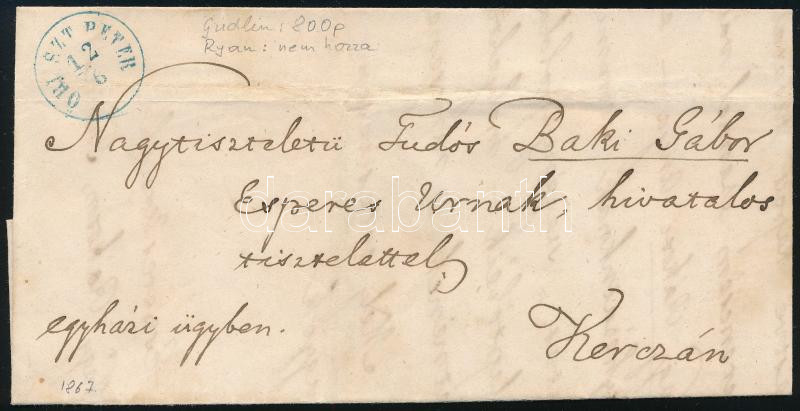 Gudlin: 800p
Ryan: nem hozza
ŐRI SZT PETER
12
6
Nagytiszteletü Tudós Baki Gábor
Esperes Urnak, hivatalos
tisztelettel,
egyházi ügyben.
Kerczán
1867.
darabanth